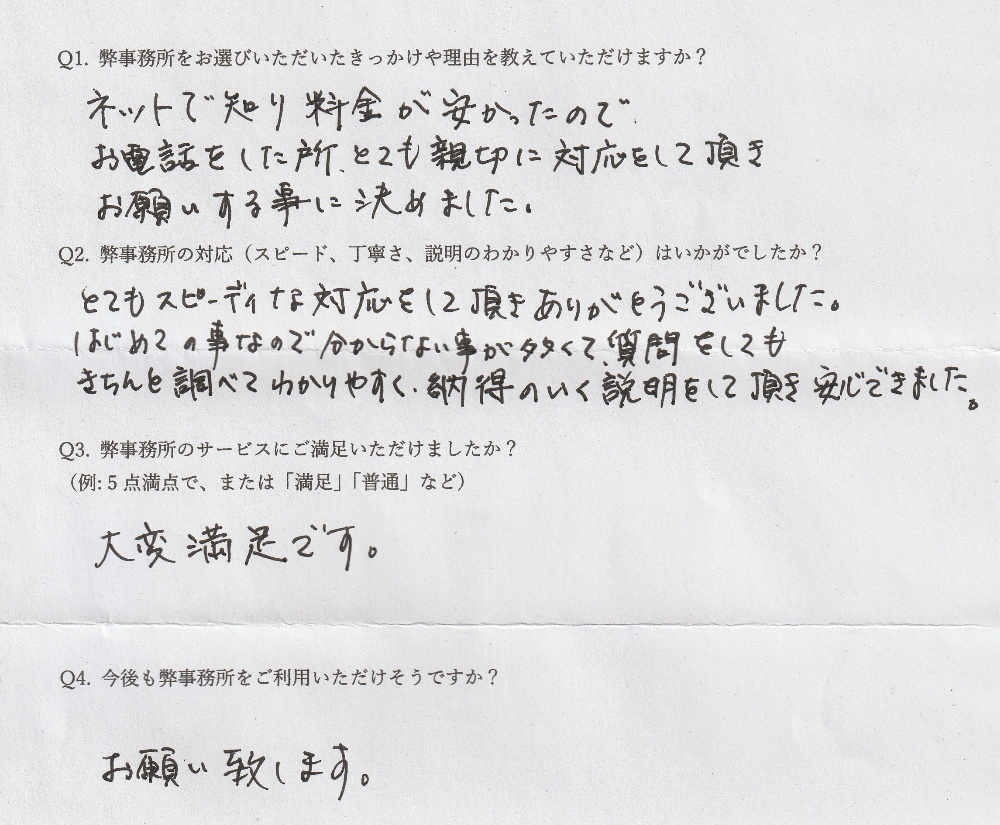 Q1. 弊事務所をお選びいただいたきっかけや理由を教えていただけますか？
ネットで知り料金が安かったので、
お電話をした所、とても親切に対応をして頂き
お願いする事に決めました。
Q2. 弊事務所の対応（スピード、丁寧さ、説明のわかりやすさなど）はいかがでしたか？
とてもスピーディな対応をして頂きありがとうございました。
はじめての事なので分からない事が多くて、質問をしても
きちんと調べてわかりやすく、納得のいく説明をして頂き安心できました。
Q3. 弊事務所のサービスにご満足いただけましたか？
（例: 5 点満点で、または「満足」「普通」など）
大変満足です。
Q4. 今後も弊事務所をご利用いただけそうですか？
お願い致します。